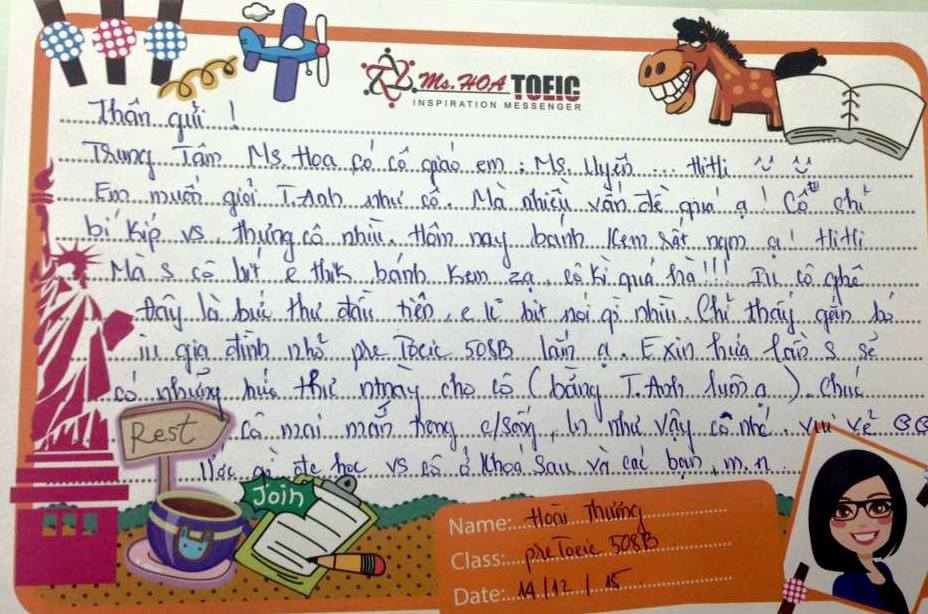 Ms. HOA TOEIC
INSPIRATION MESSENGER
Thân gửi !
Trung Tâm Ms. Hoa có cô giáo em : Ms. Uyên ... Hihi
Em muốn giỏi T.Anh như cô. Mà nhiều vấn đề quá ạ ! Cô chỉ
bí kíp vs, thưng cô nhìu. Hôm nay bánh kem rất ngon ạ ! Hihi
Mà s cô bít e thik bánh kem za, cô kì quá hà!!! Iu cô ghê
Đây là bức thư đầu tiên, e k bít nói gì nhìu. Chỉ thấy gắn bó
iu gia đình nhỏ pre Toeic 508B lắm ạ. E xin hứa lần s sẽ
có những bức thư ntnày cho cô (bằng T.Anh luôn ạ). Chúc
Cô mai mắn trong c/sống, ln như vậy cô nhé. vui vẻ
Ước gì đc học vs cô ở khoá sau và các bạn, m.n
Rest
Join
Name: Hoài Thương
Class: pre Toeic 508B
Date: 14/12/15